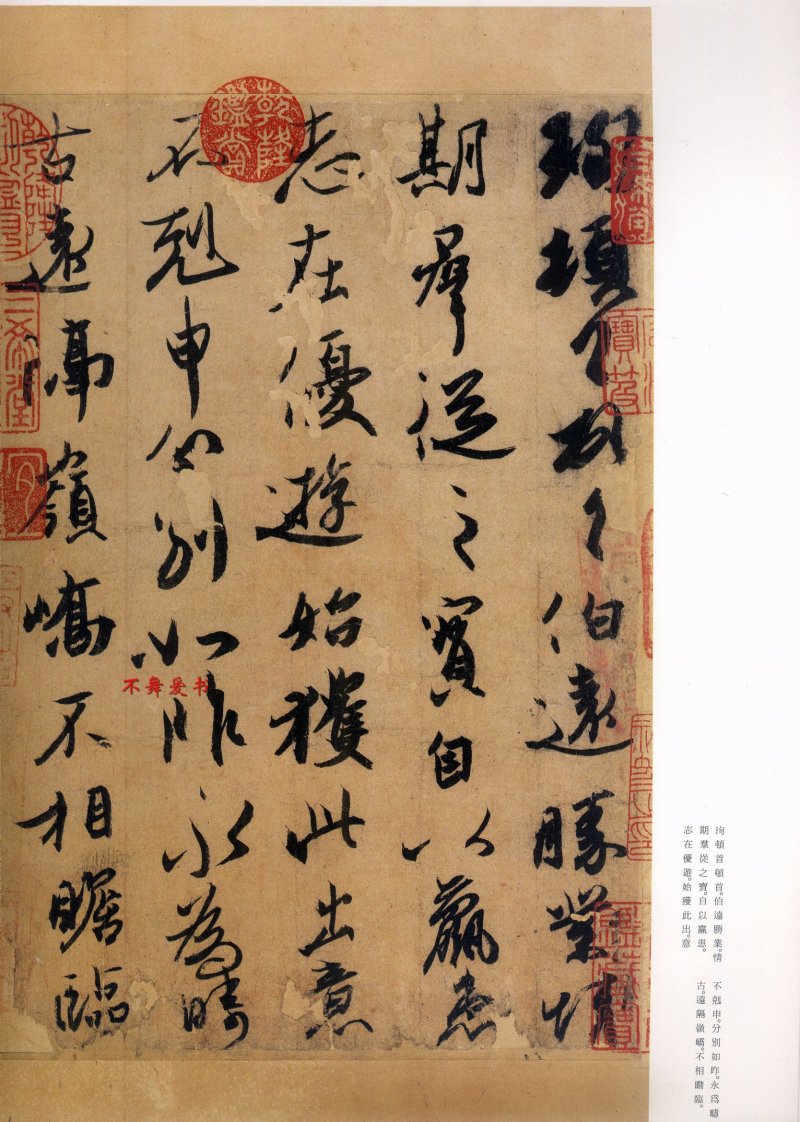 珣頓首頓首伯遠勝業情
期羣從之寶自以羸患
志在優遊始獲此出意
不剋申分別如昨永為疇
古遠隔嶺嶠不相瞻臨
乾隆鑑賞
三希堂
不舞爱书
珣頓首頓首。伯遠勝業。情
期羣從之寶。自以羸患。
志在優遊。始獲此出。意
不剋申。分別如昨。永爲疇
古。遠隔嶺嶠。不相瞻臨。